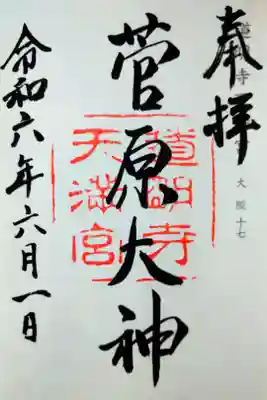 奉拝
大阪十七
菅原大神
道明寺
天満宮
令和六年六月一日